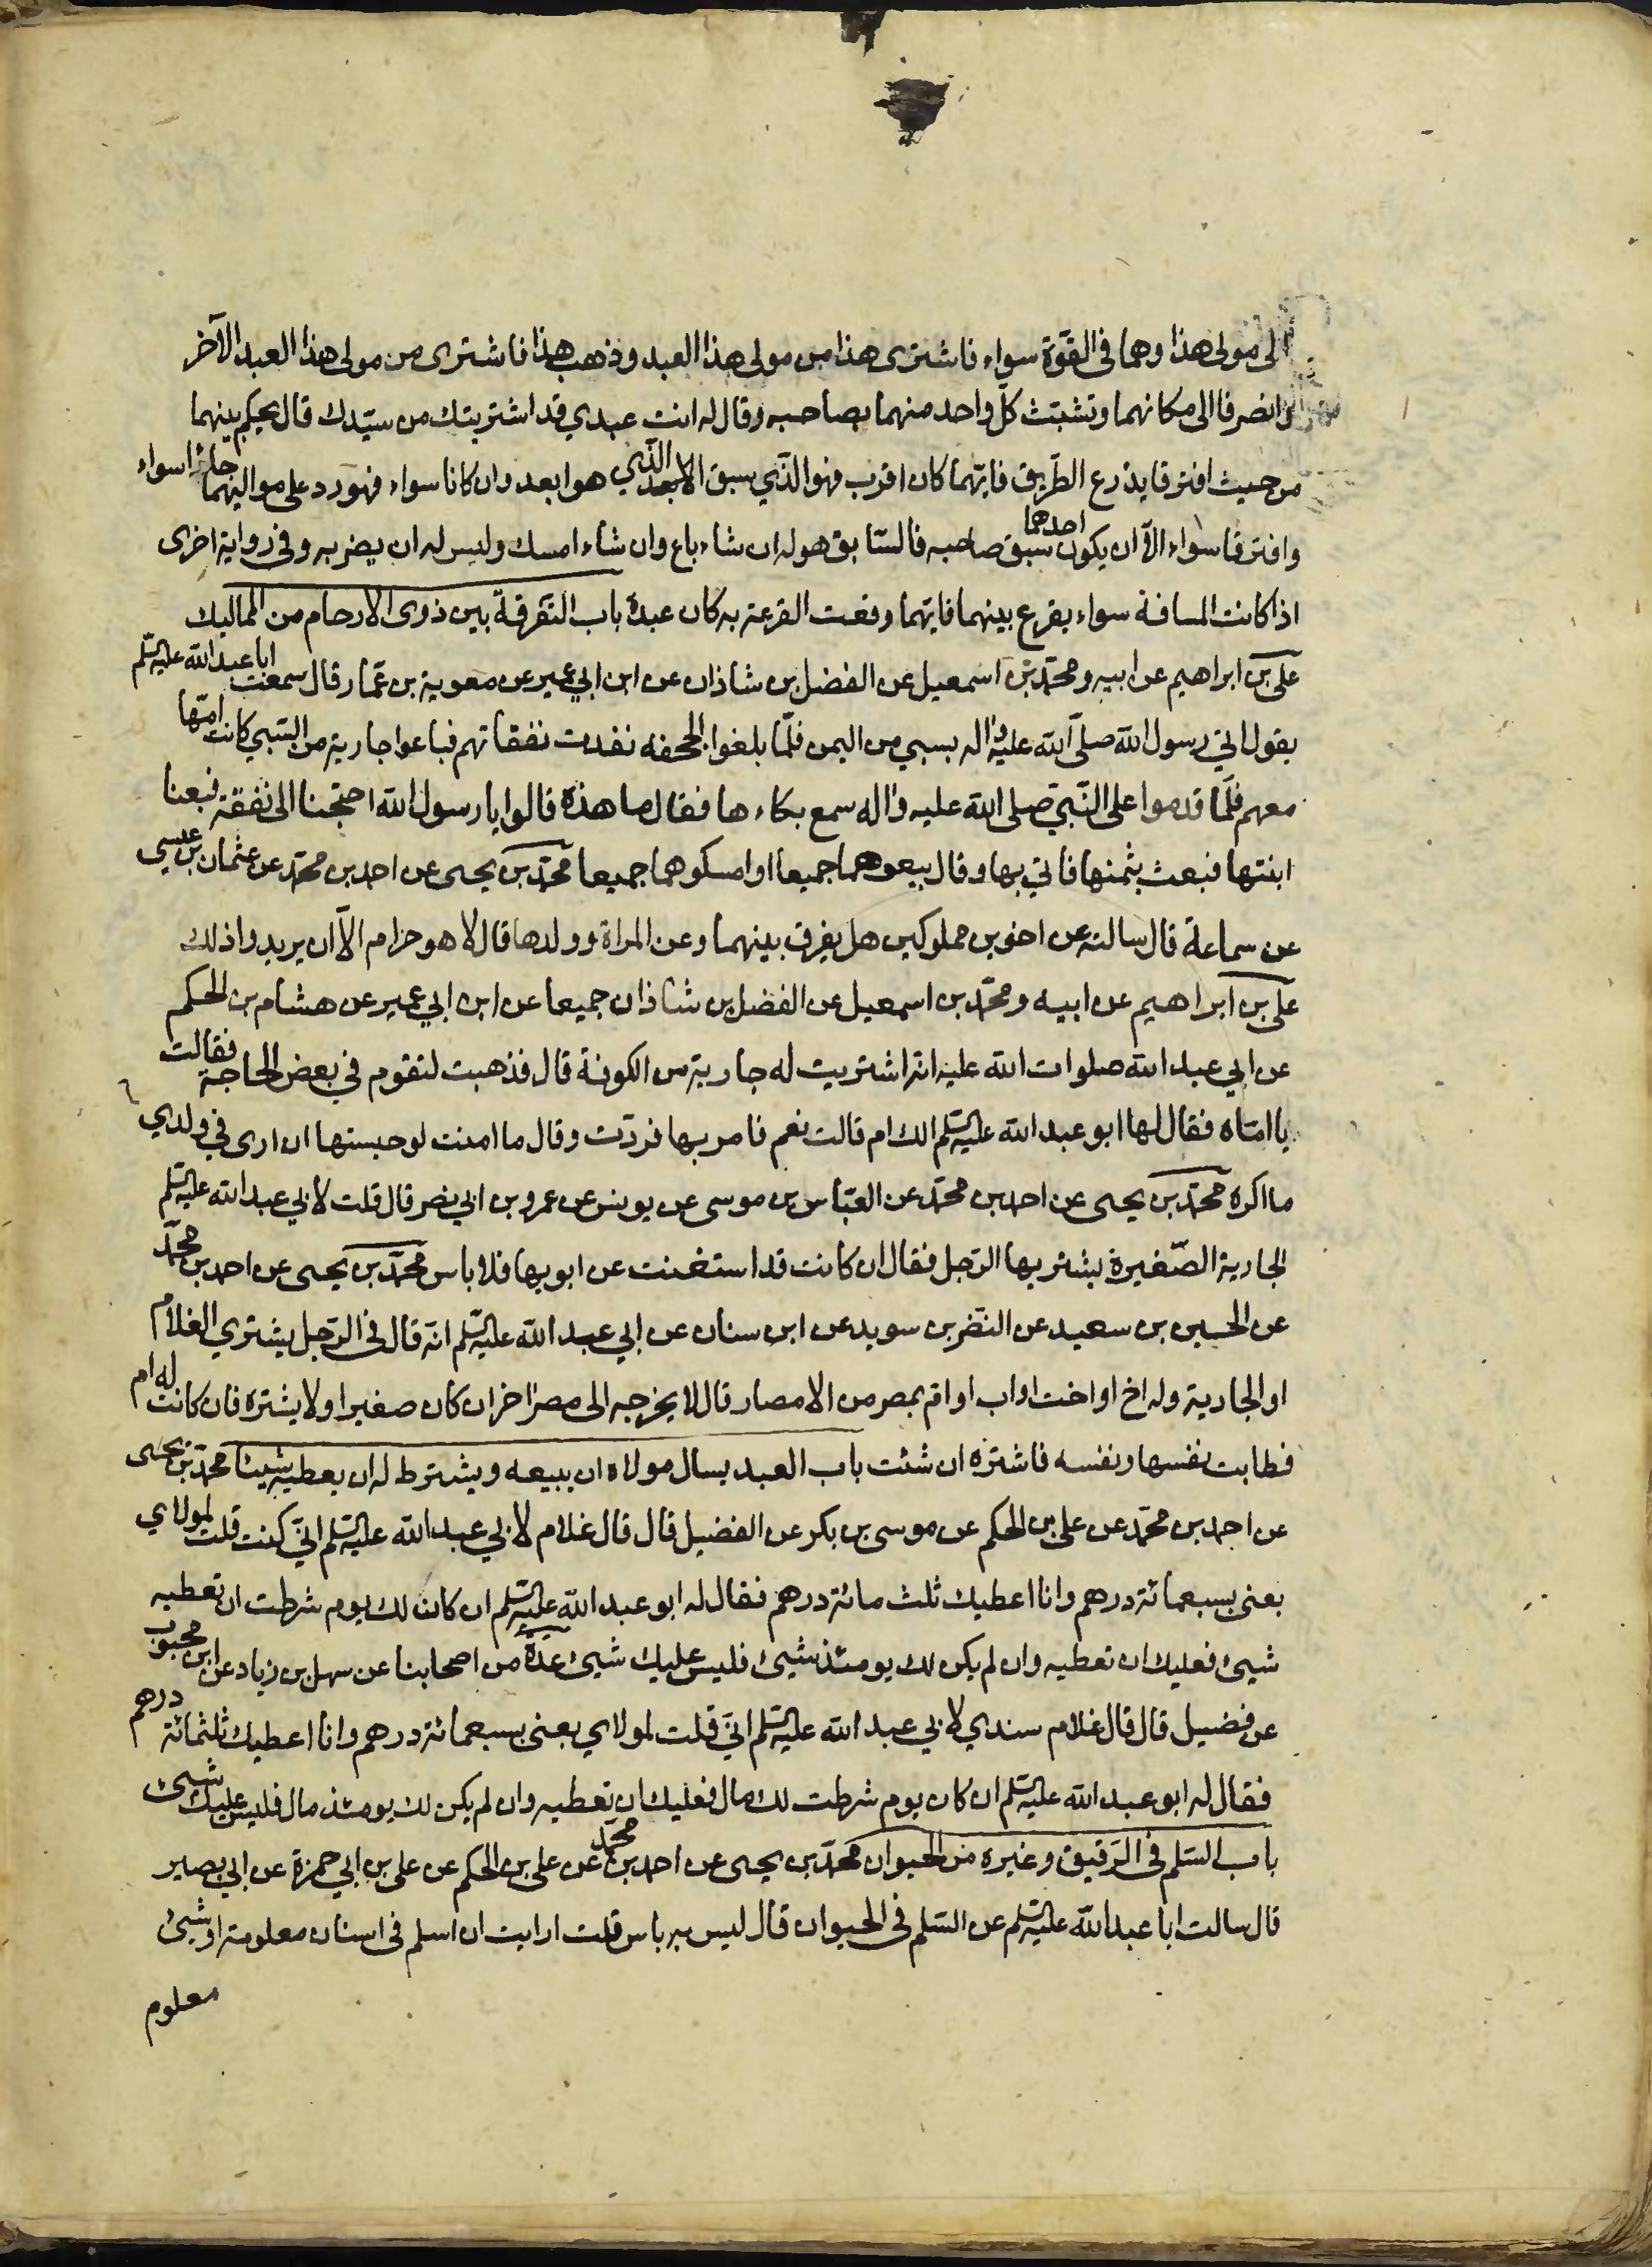 لى مولى هذا وهما فى القوّة سواء فاشترى هذا من مولى هذا العبد وذهب هذا فاشترى من مولى هذا العبد الآخر
وانصرفا الى مكانهما وتشبث كلّ واحد منهما بصاحبه وقال له انت عبدي قد اشتريتك من سيّدك قال يحكم بينهما
من حيث افترقا يذرع الطّريق فايّهما كان اقرب فهو الذّي سبق الابعد الذّي هو ابعد وان كانا سواء فهو رد على مواليهما جاءا سواء
وافترقا سواء الّا ان يكون احدهما سبق صاحبه فالسّابق هو له ان شاء باع وان شاء امسك وليس له ان يضر به وفى رواية اخرى
اذا كانت المسافة سواء يقرع بينهما فايّهما وقعت القرعة به كان عبده باب التّفرقة بين ذوى الارحام من المماليك
على بن ابراهيم عن ابيه ومحمّد بن اسمعيل عن الفضل بن شاذان عن ابن ابي عمير عن معوية بن عمّار قال سمعت ابا عبد الله عليه السّلم
يقول اتي رسول الله صلّى الله عليه واله بسبي من اليمن فلمّا بلغوا الجحفه نفدت نفقاتهم فباعوا جارية من السّبي كانت امّها
معهم فلمّا قدموا على النّبيّ صلى الله عليه واله سمع بكاءها فقال ما هذه قالوا يا رسول الله احتجنا الى نفقة فبعنا
ابنتها فبعث بثمنها فاتي بها وقال بيعوهما جميعا او امسكوهما جميعا محمّد بن يحيى عن احمد بن محمّد عن عثمان بن عيسى
عن سماعة قال سالته عن اخوين مملوكين هل يفرق بينهما وعن المراة وولدها قال لا هو حرام الّا ان يريدوا ذلك
على بن ابراهيم عن ابيه ومحمّد بن اسمعيل عن الفضل بن شاذان جميعا عن ابن ابي عمير عن هشام بن الحكم
عن ابي عبد الله صلوات الله عليه انه اشتريت له جارية من الكوفة قال فذهبت لتقوم في بعض الحاجة فقالت
يا امّاه فقال لها ابو عبد الله عليه السّلم الك ام قالت نعم فامر بها فردّت وقال ما امنت لو حبستها ان ارى في ولدي
ما اكره محمّد بن يحيى عن احمد بن محمّد عن العبّاس بن موسى عن يونس عن عمرو بن ابي نصر قال قلت لابي عبد الله عليه السّلم
الجارية الصّغيرة يشتريها الرّجل فقال ان كانت قد استغنت عن ابويها فلا باس محمّد بن يحيى عن احمد بن محمّد
عن الحسين بن سعيد عن النّضر بن سويد عن ابن سنان عن ابي عبد الله عليه السّلم انّه قال فى الرّجل يشتري الغلام
او الجارية وله اخ او اخت او اب او ام بمصر من الامصار قال لا يخرجه الى مصر اخر ان كان صغيرا ولا يشتره فان كانت له ام
فطابت نفسها ونفسه فاشتره ان شئت باب العبد يسال مولاه ان يبيعه ويشترط له ان يعطيه شيئا محمّد بن يحيى
عن احمد بن محمّد عن على بن الحكم عن موسى بن بكر عن الفضيل قال قال غلام لابي عبد الله عليه السّلم انّي كنت قلت لمولاي
بعنى بسبعمائة درهم وانا اعطيك ثلث مائة درهم فقال له ابو عبد الله عليه السّلم ان كان لك يوم شرطت ان تعطيه
شيئ فعليك ان تعطيه وان لم يكن لك يومئذ شيئ فليس عليك شيئ عدّة من اصحابنا عن سهل بن زياد عن ابن محبوب
عن فضيل قال قال غلام سندي لابي عبد الله عليه السّلم انّي قلت لمولاي بعنى بسبعمائة درهم وانا اعطيك ثلثمائة درهم
فقال له ابو عبد الله عليه السّلم ان كان يوم شرطت لك مال فعليك ان تعطيه وان لم يكن لك يومئذ مال فليس عليك شيئ
باب السّلم فى الرّقيق وغيره من الحيوان محمّد بن يحيى عن احمد بن محمّد عن على بن الحكم عن على بن ابي حمزة عن ابي بصير
قال سالت ابا عبد الله عليه السّلم عن السّلم فى الحيوان قال ليس به باس قلت ارايت ان اسلم فى اسنان معلومة او شيئ
معلوم